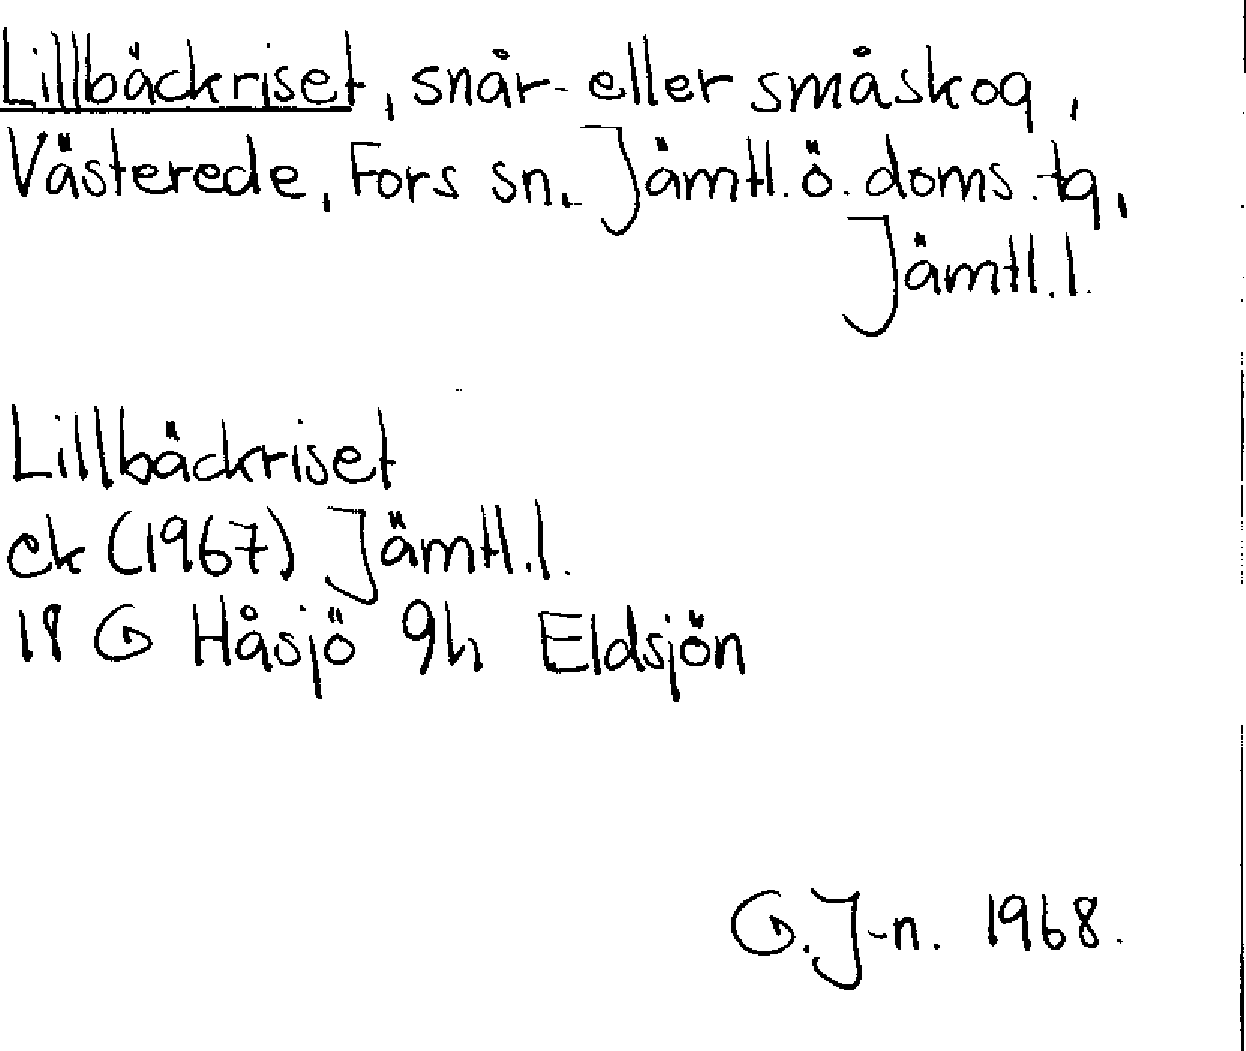 Lillbäckriset, snår- eller småskog,
Västerede, Fors sn. Jämtl. ö. doms. tg,
Jämtl. l.
Lillbäckriset
ek (1967) Jämtl. l.
18 G Håsjö 9h Eldsjön
G. J-n. 1968.